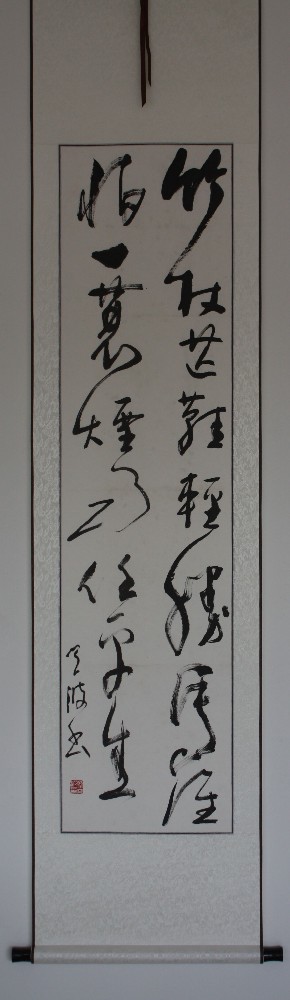 竹杖芒鞋輕勝馬誰
怕一蓑煙雨任平生